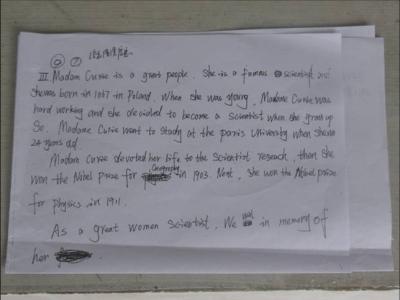 III. Madam Curie is a great people. She is a famous scientist and
she was born in 1867 in Poland. When she was young, Madame Curie was
hard working and she decided to become a scientist when she grow up
So. Madame Curie want to study at the paris University when she was
24 years old.
Madam Curie devoted her life to the scientist reseach, then she
won the Nobel prize for Geography in 1903. Next, she won the Nobel prize
for physics in 1911.
As a great women scientist. We in memory of
her